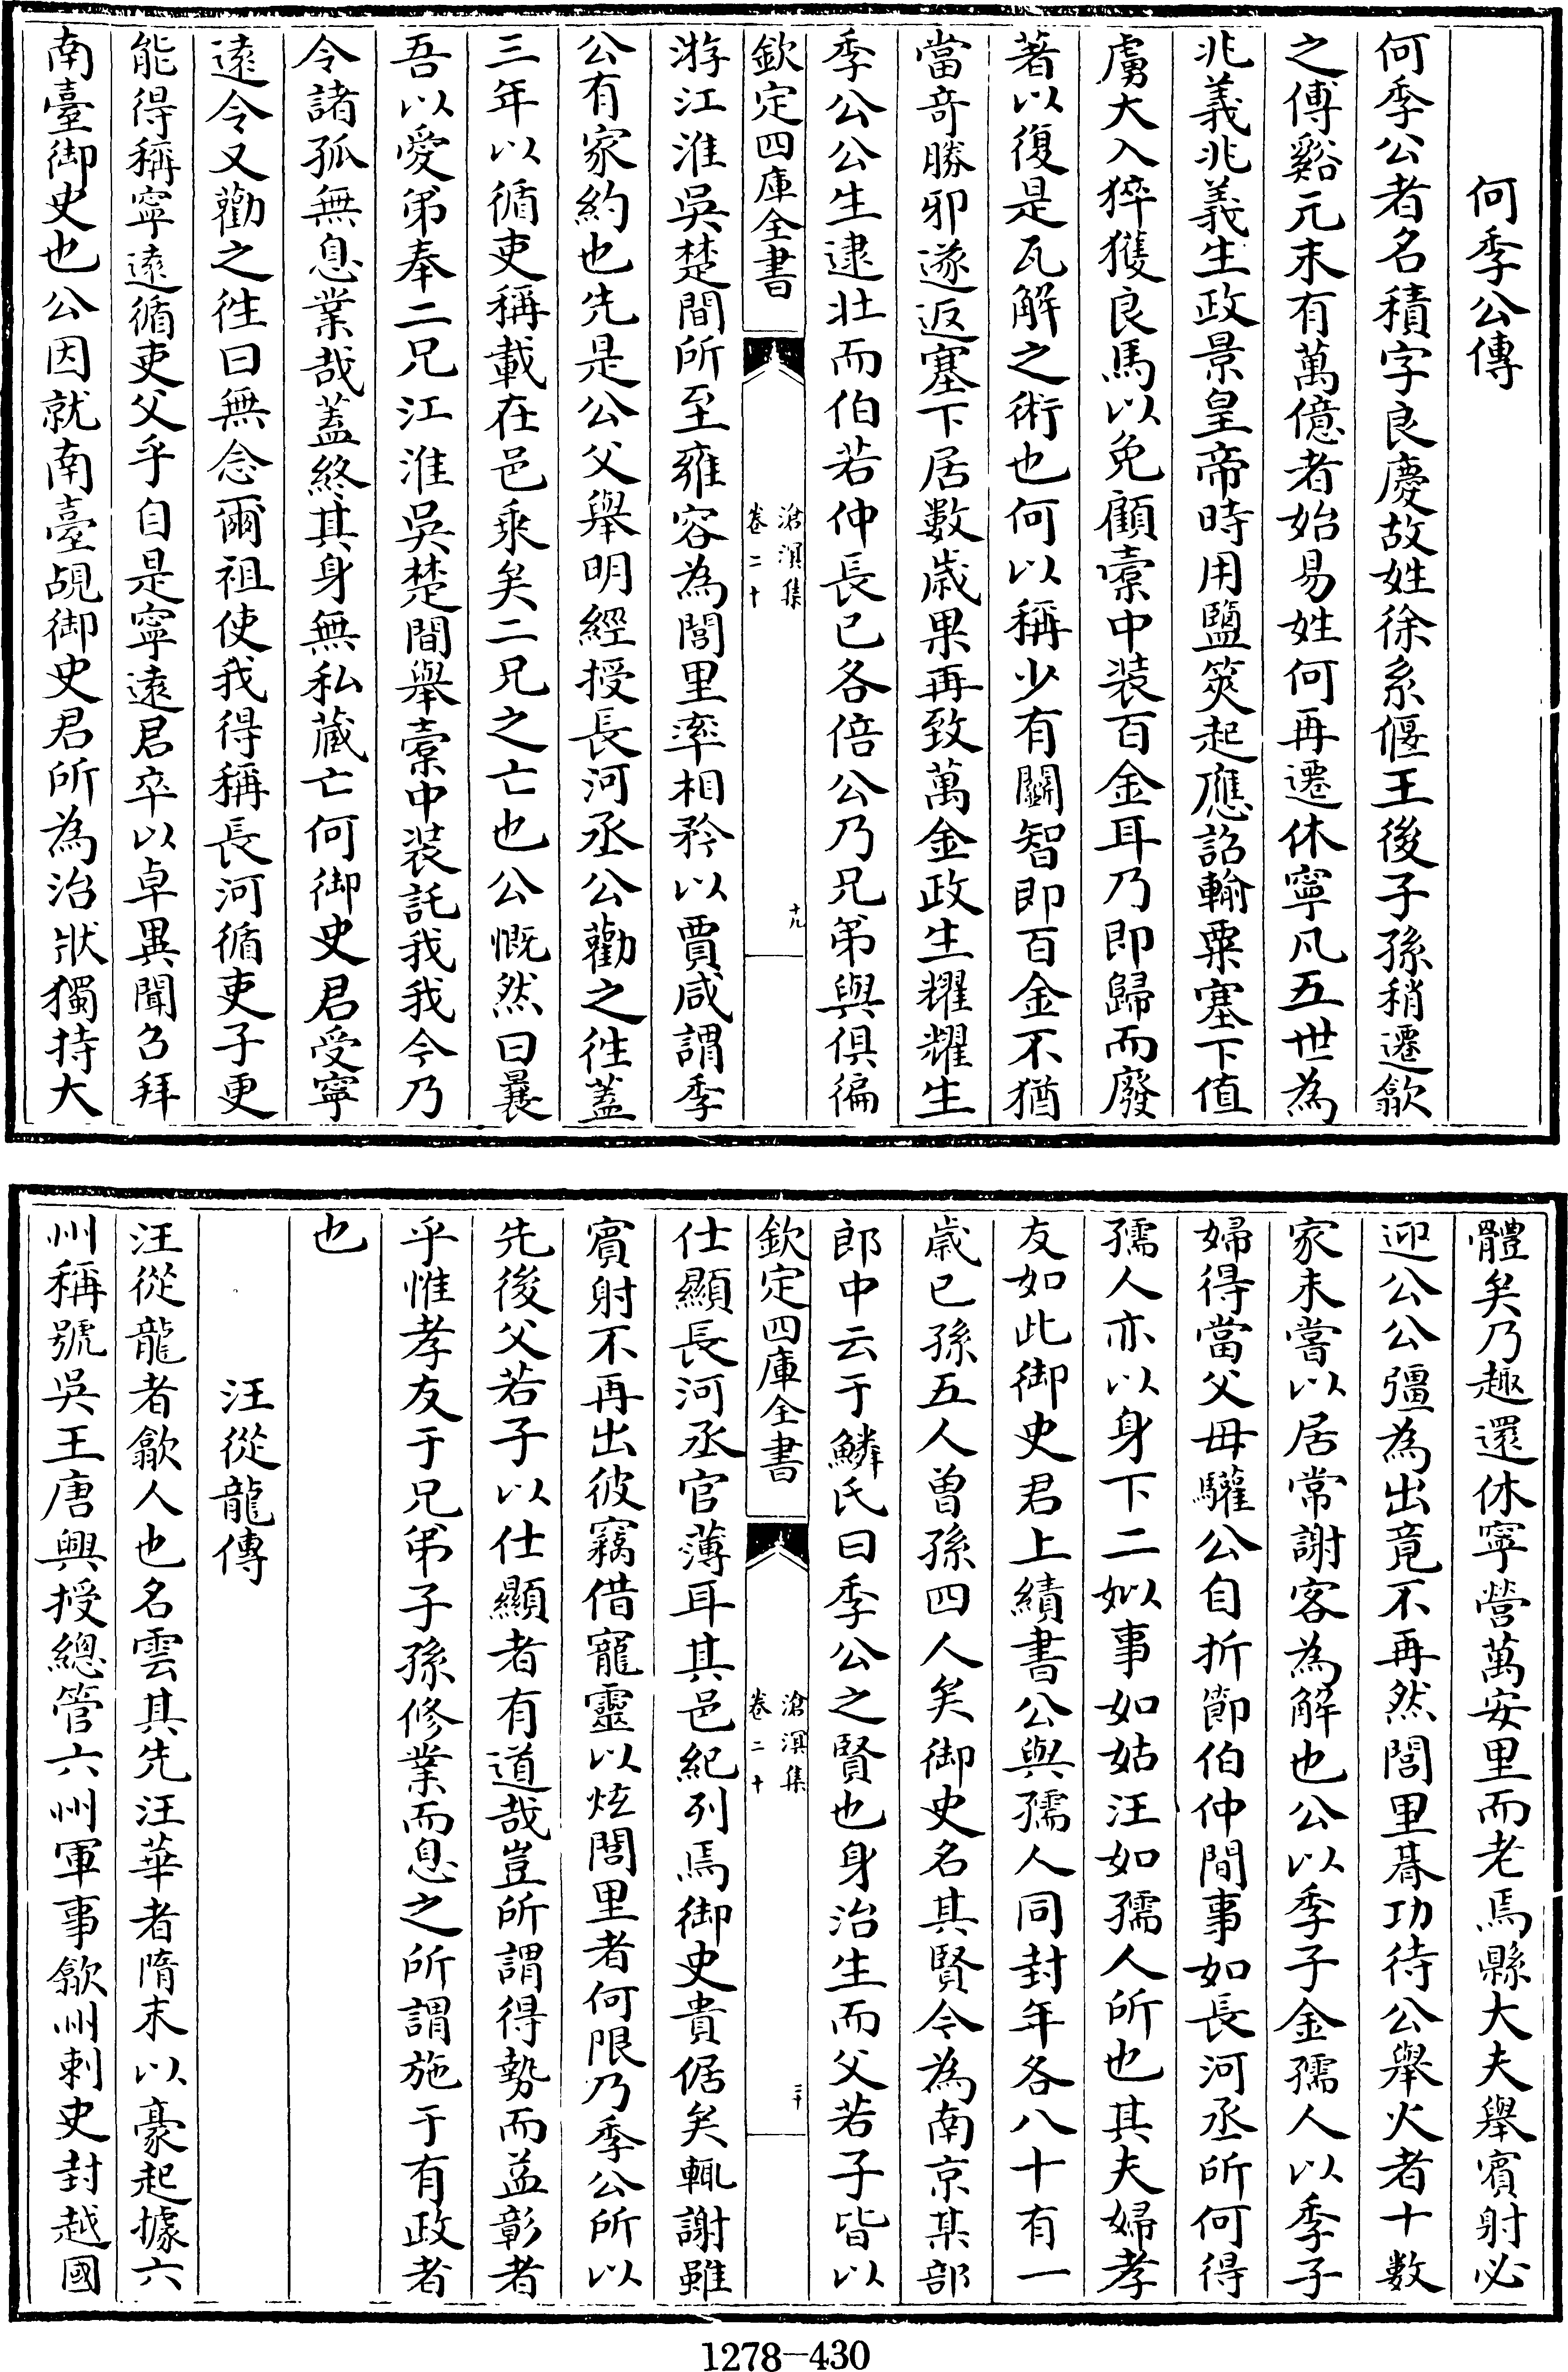 何季公傳
何季公者名積字良慶故姓徐系偃王後子孫稍遷歙
之傅谿元末有萬億者始易姓何再遷休寧凡五世為
兆義兆義生政景皇帝時用鹽筴起應詔輸粟塞下值
虜大入猝獲良馬以免顧槖中装百金耳乃即歸而廢
著以復是瓦解之術也何以稱少有鬭智即百金不猶
當竒勝邪遂返塞下居數歲果再致萬金政生耀耀生
季公公生逮壮而伯若仲長已各倍公乃兄弟與俱徧
欽定四庫全書
滄溟集
卷二十
十九
游江淮吳楚間所至雍容為閭里率相矜以賈咸謂季
公有家約也先是公父舉明經授長河丞公勸之徃蓋
三年以循吏稱載在邑乘矣二兄之亡也公慨然曰曩
吾以愛弟奉二兄江淮吳楚間舉槖中装託我我今乃
令諸孤無息業哉蓋終其身無私藏亡何御史君受寧
遠令又勸之徃曰無念爾祖使我得稱長河循吏子更
能得稱寧遠循吏父乎自是寧遠君卒以卓異聞召拜
南臺御史也公因就南臺覘御史君所為治狀獨持大
體矣乃趣還休寧營萬安里而老焉縣大夫舉賓射必
迎公公彊為出竟不再然閭里朞功待公舉火者十數
家未嘗以居常謝客為解也公以季子金孺人以季子
婦得當父母驩公自折節伯仲間事如長河丞所何得
孺人亦以身下二姒事如姑汪如孺人所也其夫婦孝
友如此御史君上績書公與孺人同封年各八十有一
歲已孫五人曾孫四人矣御史名其賢今為南京某部
郎中云于鱗氏曰季公之賢也身治生而父若子皆以
欽定四庫全書
滄溟集
卷二十
二十
仕顯長河丞官薄耳其邑紀列焉御史貴倨矣輒謝雖
賓射不再出彼竊借寵靈以炫閭里者何限乃季公所以
先後父若子以仕顯者有道哉豈所謂得勢而益彰者
乎惟孝友于兄弟子孫修業而息之所謂施于有政者
也
汪從龍傳
汪從龍者歙人也名雲其先汪華者隋末以豪起據六
州稱號吳王唐興授總管六州軍事歙州刺史封越國
1278—430